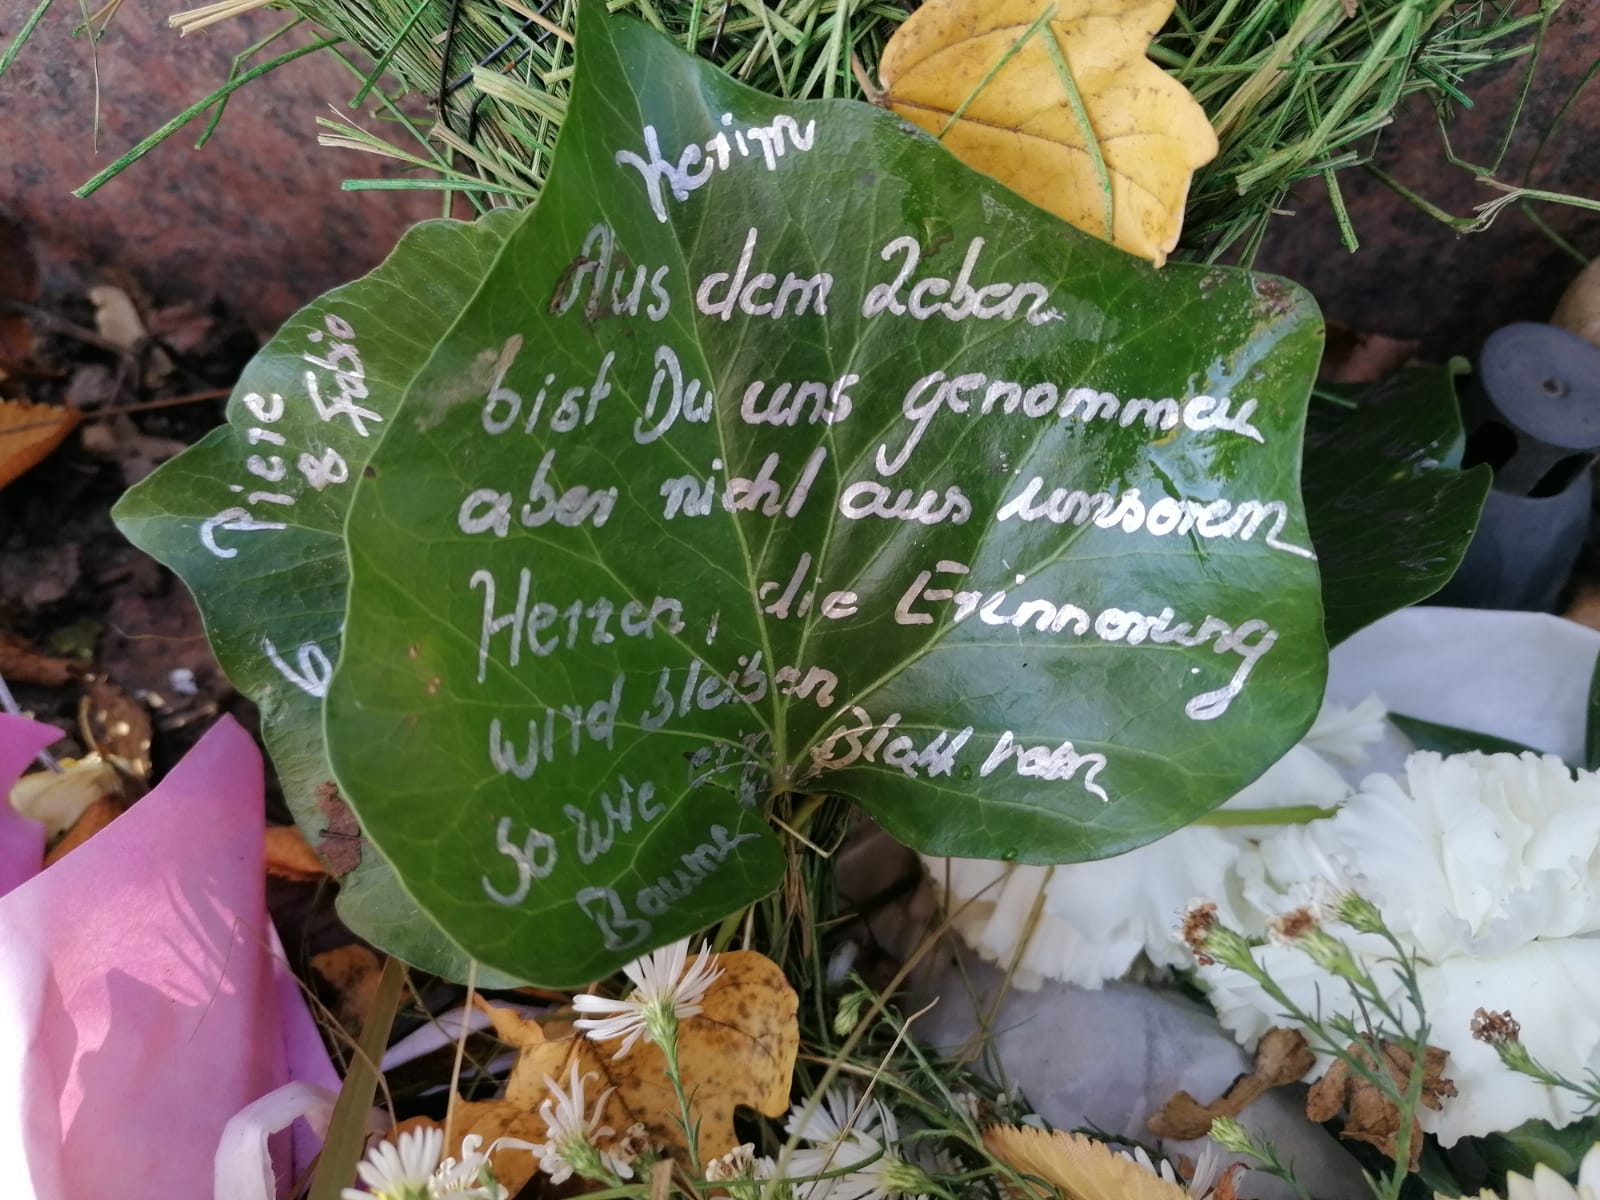 Kerim
Aus dem Leben
bist Du uns genommen
aber nicht aus unserem
Herzen, die Erinnerung
wird bleiben
So wie ein Blatt vom
Baume
Piere
& Fabio